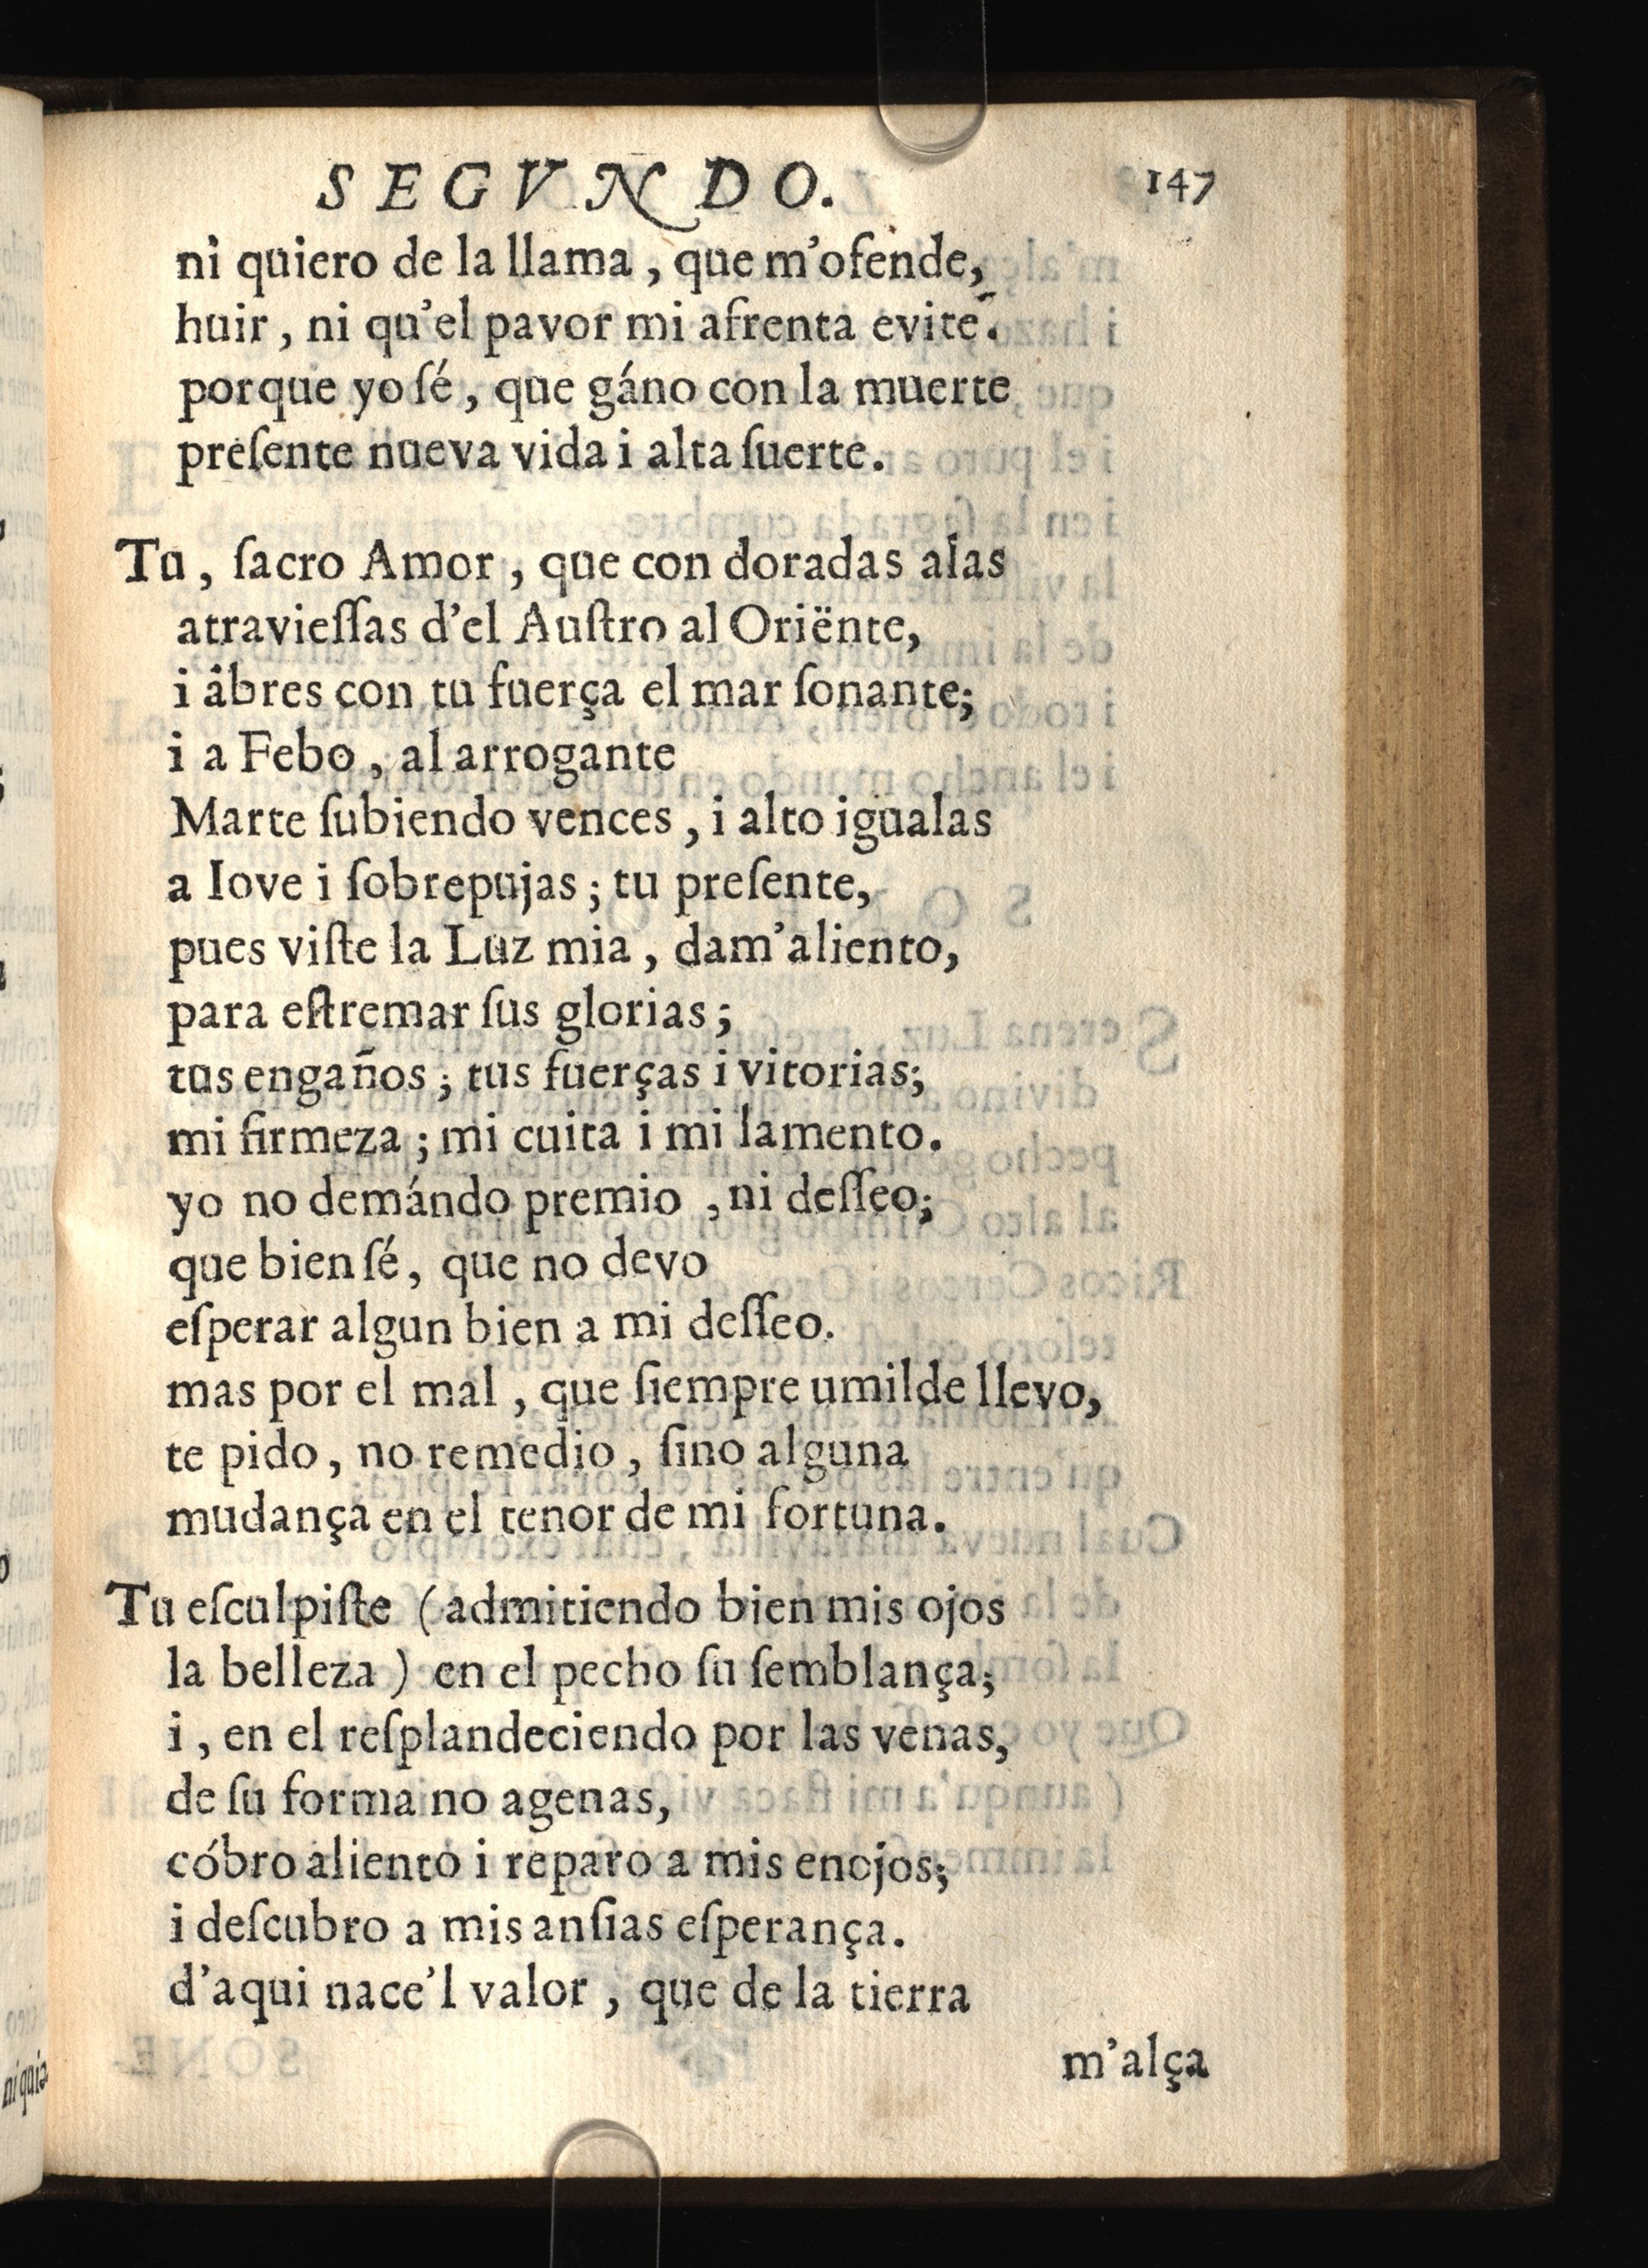 SEGVNDO. 147
ni quiero de la llama, que m'ofende,
huir, ni qu'el pavor mi afrenta evite.
porque yo ſé, que gáno con la muerte
preſente nueva vida i alta ſuerte.
Tu, ſacro Amor, que con doradas alas
atravieſſas d'el Auſtro al Oriënte,
i âbres con tu fuerça el mar ſonante;
i a Febo, al arrogante
Marte ſubiendo vences, i alto igualas
a Iove i ſobrepujas; tu preſente,
pues viſte la Luz mia, dam'aliento,
para eſtremar ſus glorias;
tus engaños; tus fuerças i vitorias;
mi firmeza; mi cuita i mi lamento.
yo no demándo premio, ni deſſeo;
que bien ſé, que no devo
eſperar algun bien a mi deſſeo.
mas por el mal, que ſiempre umilde llevo,
te pido, no remedio, ſino alguna
mudança en el tenor de mi fortuna.
Tu eſculpiſte (admitiendo bien mis ojos
la belleza) en el pecho ſu ſemblança;
i, en el reſplandeciendo por las venas,
de ſu forma no agenas,
cóbro aliento i reparo a mis enojos;
i deſcubro a mis anſias eſperança.
d'aqui nace'l valor, que de la tierra
m'alça